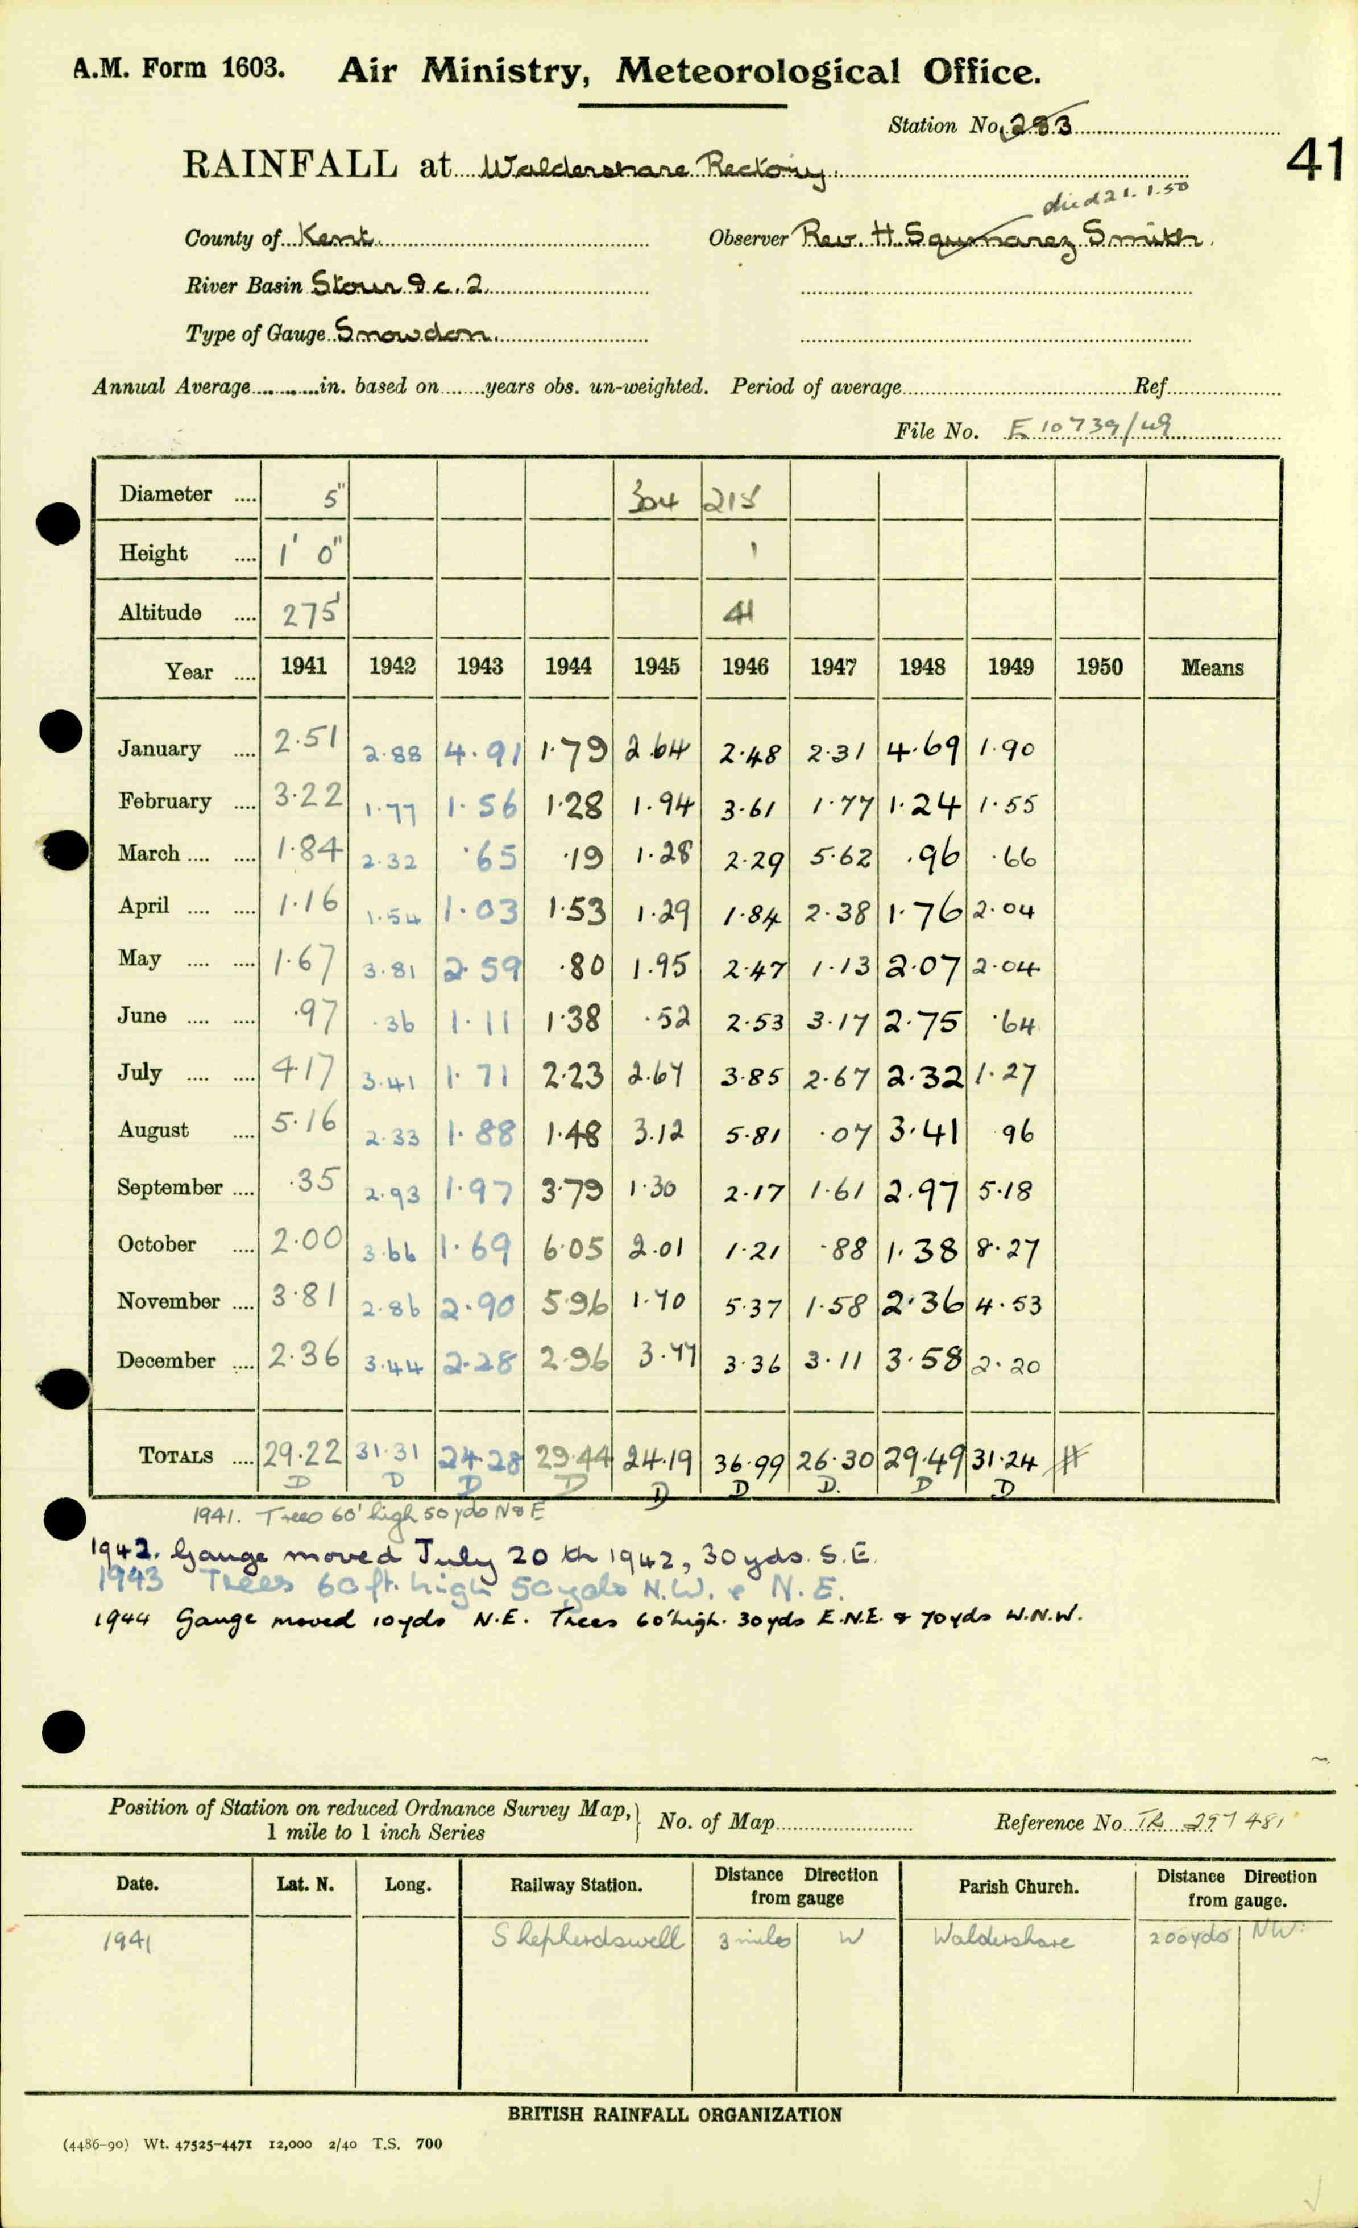 A.M. Form 1603. Air Ministry, Meteorological Office.
Station No. 283
41
RAINFALL at Waldershare Rectory.
died 21.1.50
County of Kent Observer Rev. H. Squmarez Smith.
River Basin Stour & c. 2
Type of Gauge Snowdon.
Annual Average in. based on years obs. un-weighted. Period of average Ref
File No. E 10739/49
Diameter .... 5" 304 215
Height .... 1' 0" 1
Altitude .... 275' 41
Year .... 1941 1942 1943 1944 1945 1946 1947 1948 1949 1950 Means
January .... 2.51 2.88 4.91 1.79 2.64 2.48 2.31 4.69 1.90
February .... 3.22 1.77 1.56 1.28 1.94 3.61 1.77 1.24 1.55
March .... .... 1.84 2.32 .65 .19 1.28 2.29 5.62 .96 .66
April .... .... 1.16 1.54 1.03 1.53 1.29 1.84 2.38 1.76 2.04
May .... .... 1.67 3.81 2.59 .80 1.95 2.47 1.13 2.07 2.04
June .... .... .97 .36 1.11 1.38 .52 2.53 3.17 2.75 .64
July .... .... 4.17 3.41 1.71 2.23 2.67 3.85 2.67 2.32 1.27
August .... 5.16 2.33 1.88 1.48 3.12 5.81 .07 3.41 .96
September .... .35 2.93 1.97 3.79 1.30 2.17 1.61 2.97 5.18
October .... 2.00 3.66 1.69 6.05 2.01 1.21 .88 1.38 8.27
November .... 3.81 2.86 2.90 5.96 1.70 5.37 1.58 2.36 4.53
December .... 2.36 3.44 2.28 2.96 3.77 3.36 3.11 3.58 2.20
TOTALS .... 29.22 31.31 24.28 29.44 24.19 36.99 26.30 29.49 31.24 #
D D D D D D D. D D
1941. Trees 60' high 50 yds N & E
1942. Gauge moved July 20th 1942, 30 yds. S.E.
1943 Trees 60 ft. high 50 yds N.W. & N.E.
1944 Gauge moved 10 yds N.E. Trees 60' high. 30 yds E.N.E. & 70 yds W.N.W.
Position of Station on reduced Ordnance Survey Map,
1 mile to 1 inch Series
No. of Map Reference No. TR 297 481
Date. Lat. N. Long. Railway Station. Distance Direction from gauge Parish Church. Distance Direction from gauge.
1941 Shepherdswell 3 miles W Waldershare 200 yds NW.
BRITISH RAINFALL ORGANIZATION
(4486-90) Wt. 47525-4471 12,000 2/40 T.S. 700